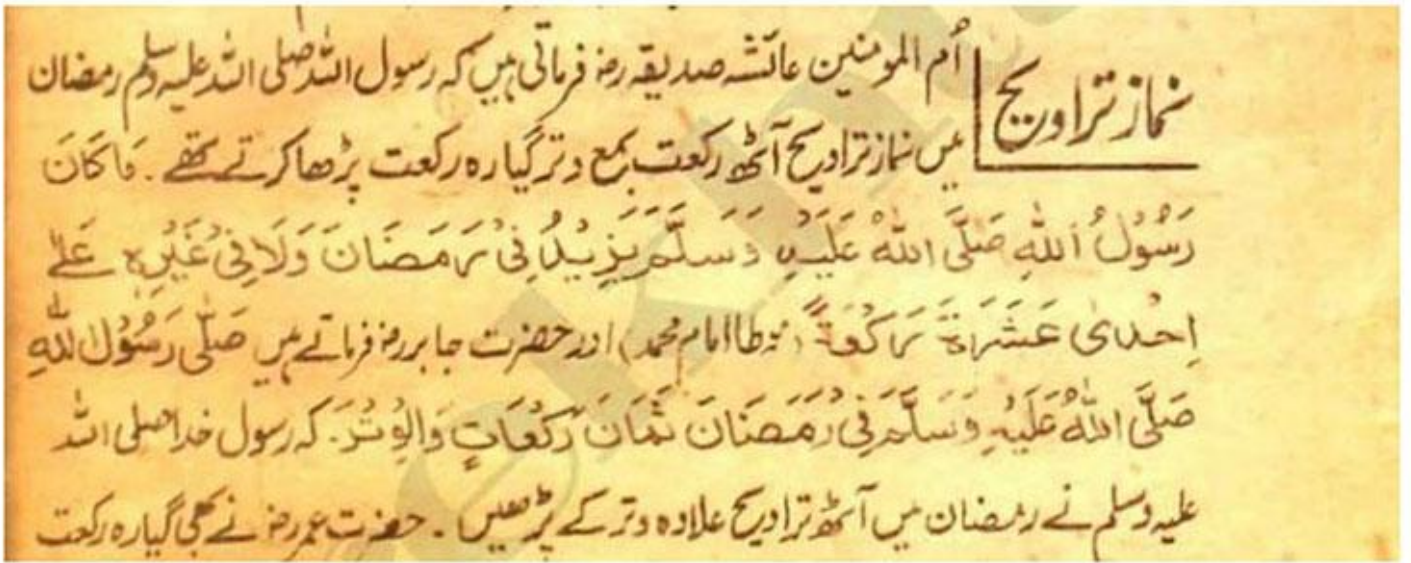 نماز تراویح
اُم المومنین عائشہ صدیقہ رضہ فرماتی ہیں کہ رسول اللہ صلی اللہ علیہ وسلم رمضان
میں نماز تراویح آٹھ رکعت بمع وتر گیارہ رکعت پڑھا کرتے تھے ۔ مَا کَانَ
رَسُوْلُ اللهِ صَلَّی اللهُ عَلَیْهِ وَسَلَّمَ یَزِیْدُ فِیْ رَمَضَانَ وَلَا فِیْ غَیْرِهٖ عَلٰے
اِحْدٰی عَشَرَةَ رَکْعَةً (موطا امام محمد) اور حضرت جابر رضہ فرماتے ہیں صَلّٰی رَسُوْلُ اللهِ
صَلَّی اللهُ عَلَیْهِ وَسَلَّمَ فِیْ رَمَضَانَ ثَمَانَ رَکْعَاتٍ وَالْوِتْرَ ۔ کہ رسول خدا صلی اللہ
علیہ وسلم نے رمضان میں آٹھ تراویح علاوہ وتر کے پڑھیں ۔ حضرت عمر رضہ نے بھی گیارہ رکعت